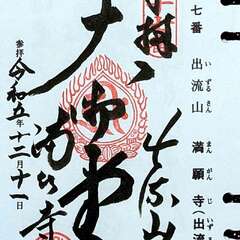 七番 出流山 満願寺(出流
いずるさん まんがんじ
出流山
大御堂
満願寺
参拝 令和五年十二月十一日